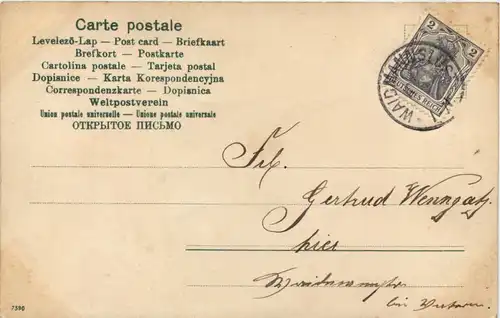 Carte postale
Levelező-Lap — Post card — Briefkaart
Brefkort — Postkarte
Cartolina postale — Tarjeta postal
Dopisnice — Karta Korespondencyjna
Correspondenzkarte — Dopisnica
Weltpostverein
Union postale universelle — Unione postale universale
ОТКРЫТОЕ ПИСЬМО
2 2
REICH
WAIDMANNSLUST
Frl.
Gertrud Wenngatz.
hier
bei
7390